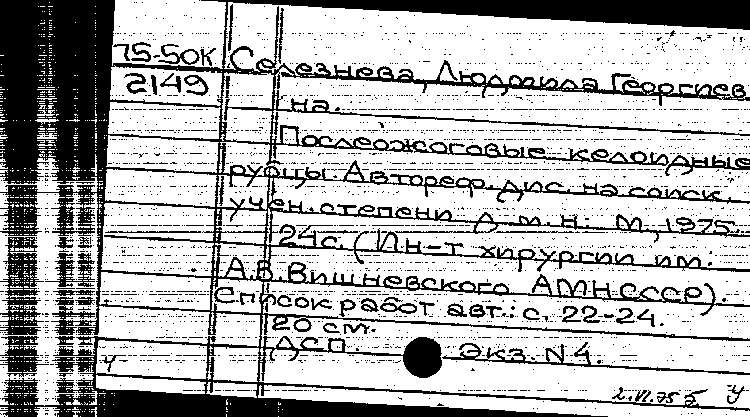 75-50К Селезнева, Людмила Георгиев
2149 на.
Послеожоговые келоидные
рубцы. Автореф. дис. на соиск.
учен. степени д. м. н. М., 1975.
24с. (Ин-т хирургии им.
А.В. Вишневского АМН СССР).
Список работ авт.: с. 22-24.
20 см.
ДСП. Экз. N 4.
2.VI.75 У